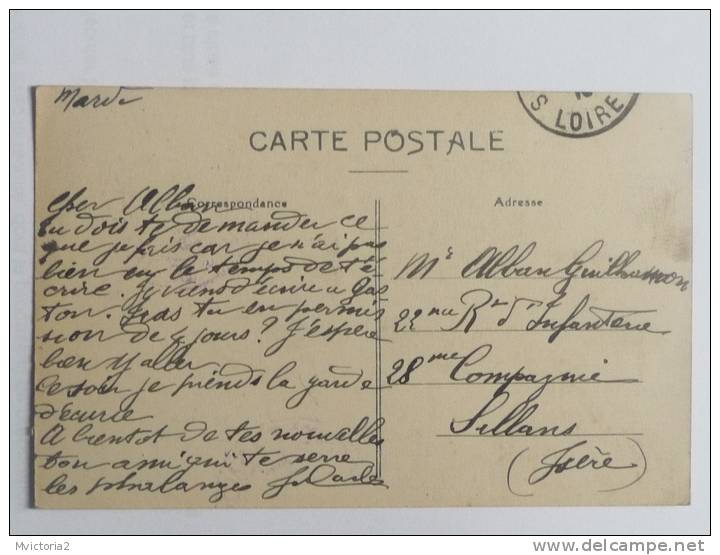 Mardi
S. LOIRE
CARTE POSTALE
Correspondance
Adresse
Cher Alban
tu dois te demander ce
que je fais car je n'ai pas
bien eu le temps de t'é
crire. J'y viens d'écrire a Gas
ton. Iras tu en permis
sion de 4 jours? J'espère
bien y aller
Ce soir je prends la garde
d'écurie
A bientot de tes nouvelles
ton ami qui te serre
les phalanges
Mr Alban Guilhaumon
22me Rt d'Infanterie
28me Compagnie
Sillans
(Isère)
Mvictoria2
delcampe.net